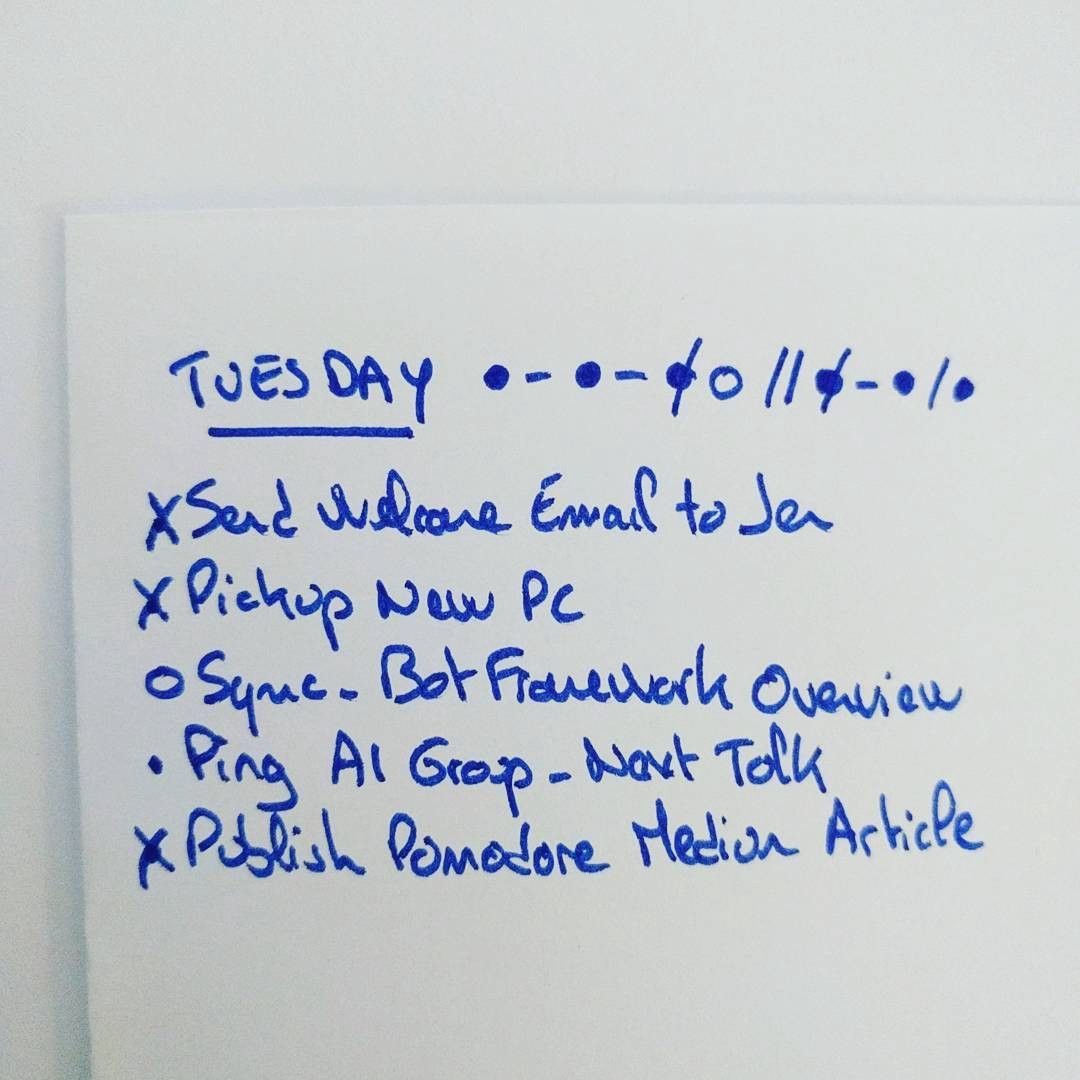 TUESDAY ● - ● - ⌿ ○ // ⌿ - ● / ●
x Send Welcome Email to Jen
x Pickup New PC
○ Sync - Bot Framework Overview
• Ping AI Group - Next Talk
x Publish Pomodore Medium Article